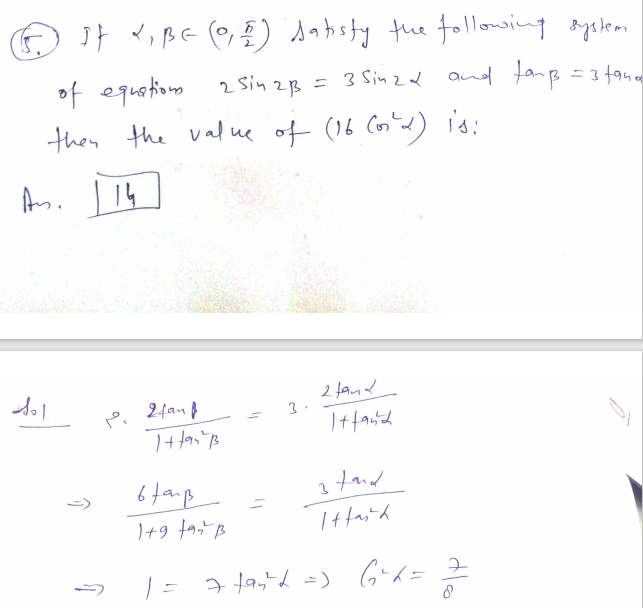 5. If α, β ∈ (0, π/2) satisfy the following system
of equations 2 sin 2β = 3 sin 2α and tan β = 3 tan α
then the value of (16 cos²α) is:
Ans. 14
Sol 2. 2tanβ/(1+tan²β) = 3. 2tanα/(1+tan²α)
=> 6tanβ/(1+9 tan²β) = 3tanα/(1+tan²α)
=> 1 = 7 tan²α => cos²α = 7/8